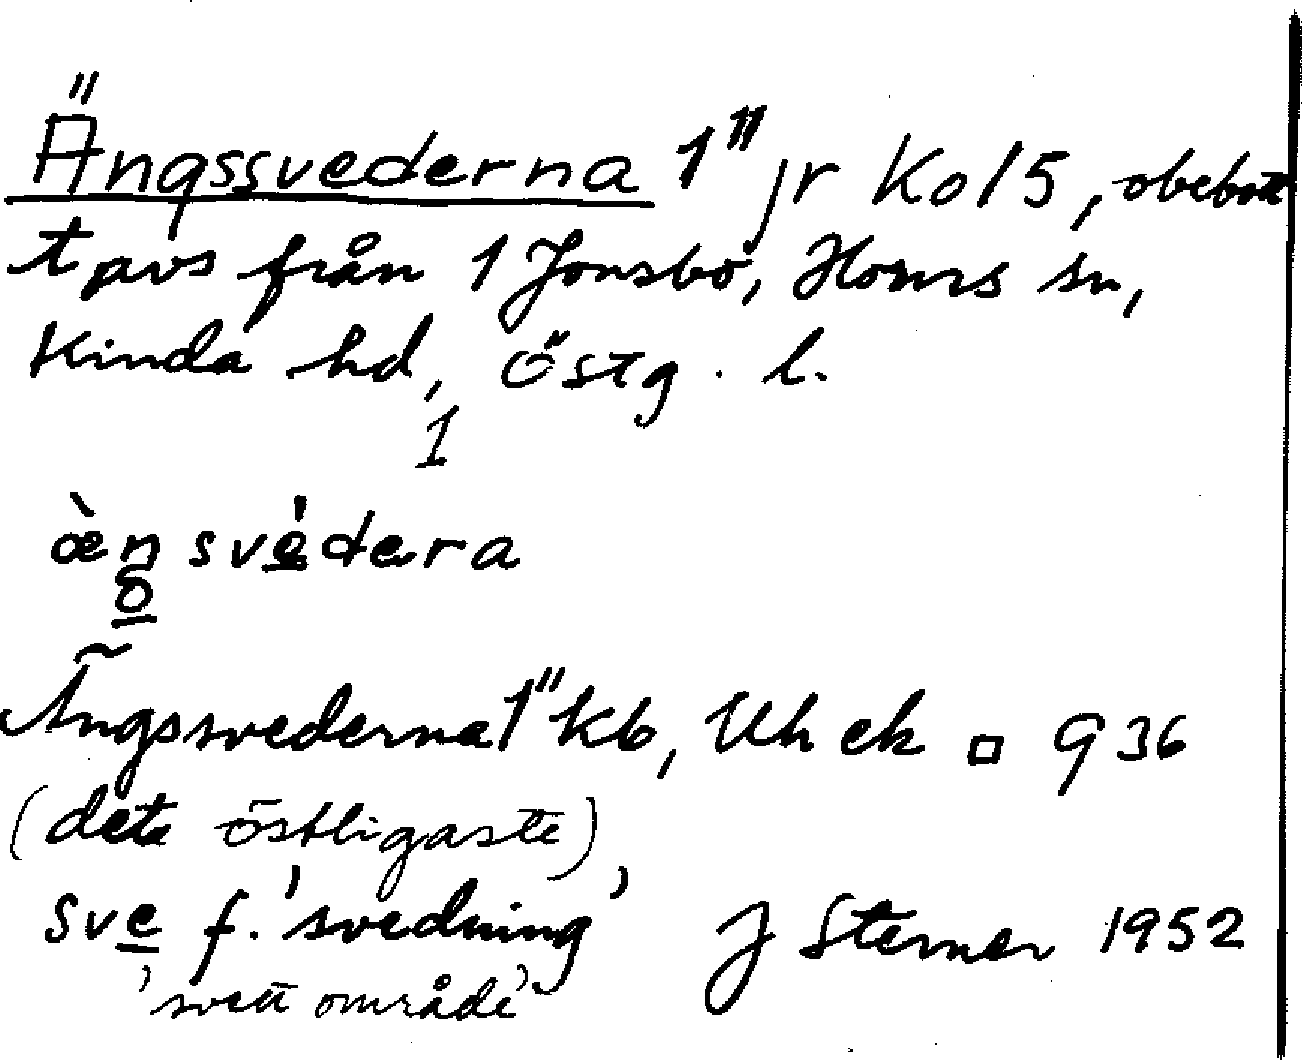 Ängssvederna 1" jr Ko 15, obebott
t avs från 1 Jonsbo, Horns sn,
Kinda hd, Östg. l.
1
æ̀n svédera
Ängssvederna 1" kb, Uh ek □ 936
(det östligaste)
sve f. 'svedning' J Sterner 1952
'svett område'